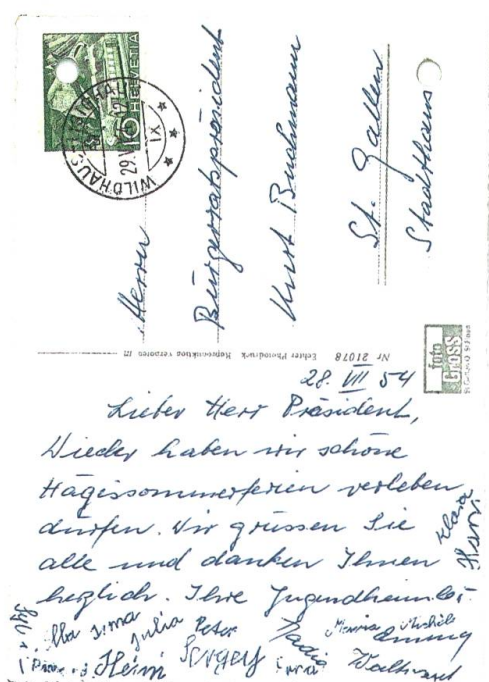 HELVETIA
10
WILDHAUS
29.V
IX
Herrn
Bürgerratspräsident
Kurt Buchmann
St. Gallen
Stadthaus
Nr 21078 Echter Photodruck Reproduktion verboten
foto
GROSS
St. Gallen
28. VII 54
Lieber Herr Präsident,
Wieder haben wir schöne
Hägissommerferien verleben
dürfen. Wir grüssen Sie
alle und danken Ihnen
herzlich. Ihre Jugendheimler
Maria
Irma
Julia
Peter
Heini
Nadia
Michele